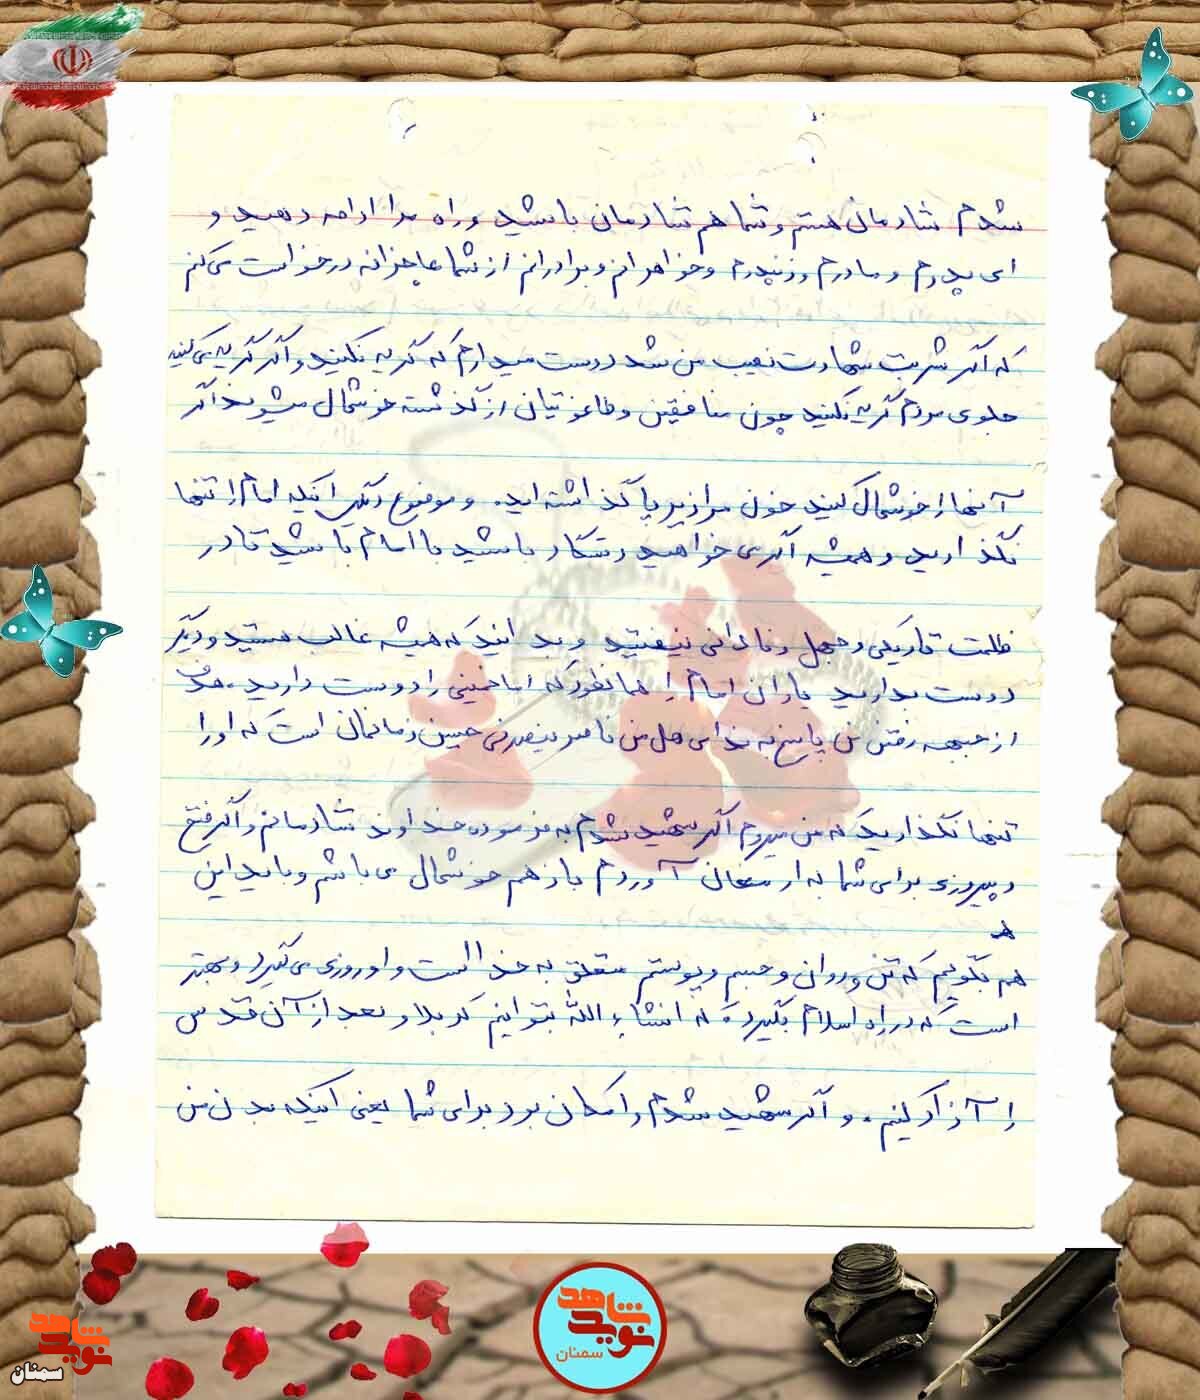 شدم شادمان هستم و شما هم شادمان باشید و راه مرا ادامه دهید و
ای پدرم و مادرم و زنپدرم و خواهرانم و برادرانم از شما عاجزانه درخواست می‌کنم
که اگر شربت شهادت نصیب من شد دوست میدارم که گریه نکنید و اگر گریه می‌کنید
جلوی مردم گریه نکنید چون منافقین و طاغوتیان از گذشته خوشحال میشوند اگر
آنها را خوشحال کنید خون مرا زیر پا گذاشته‌اید. و موضوع دیگر اینکه امام را تنها
نگذارید و همیشه اگر می خواهید رستگار باشید با امام باشید تا در
ظلمت تاریکی و جهل و نادانی نیفتید و بدانید که همیشه غالب هستید و دیگر
دوست بدارید یاران امام را همانطور که امام خمینی را دوست دارید. هدف
از جبهه رفتن من پاسخ به ندای هل من ناصر ینصرنی حسین زمانمان است که او را
تنها نگذارید که من میروم اگر شهید شدم به فرموده خداوند شادمانم و اگر فتح
و پیروزی برای شما به ارمغان آوردم باز هم خوشحال می باشم و باید این
هم بگویم که تن و روان و جسم و پوستم متعلق به خدا است و او روزی می گیرد و بهتر
است که در راه اسلام بگیرد که انشاء الله بتوانیم کربلا و بعد از آن قدس
را آزاد کنیم. و اگر شهید شدم و امکان بود برای شما یعنی اینکه بدن من
نوید شاهد
سمنان
نوید شاهد
سمنان